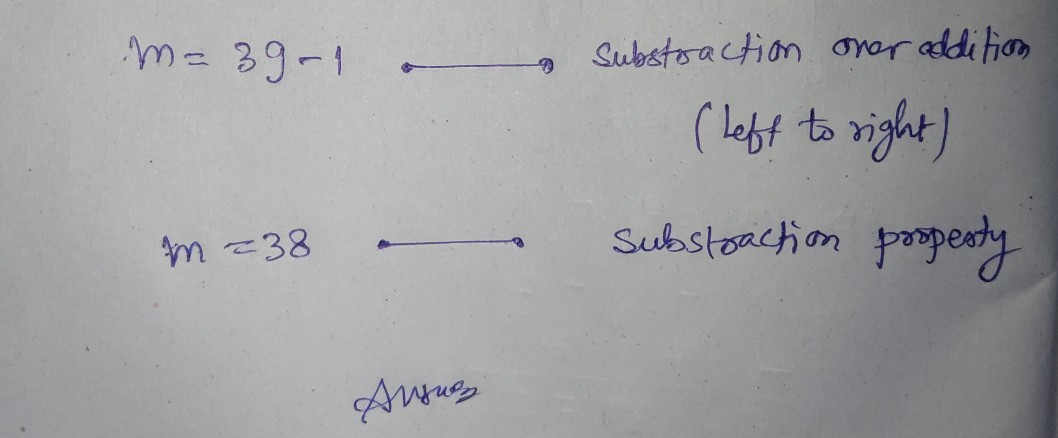 m = 39-1 substraction over addition
(left to right)
m = 38 substraction property
Answer